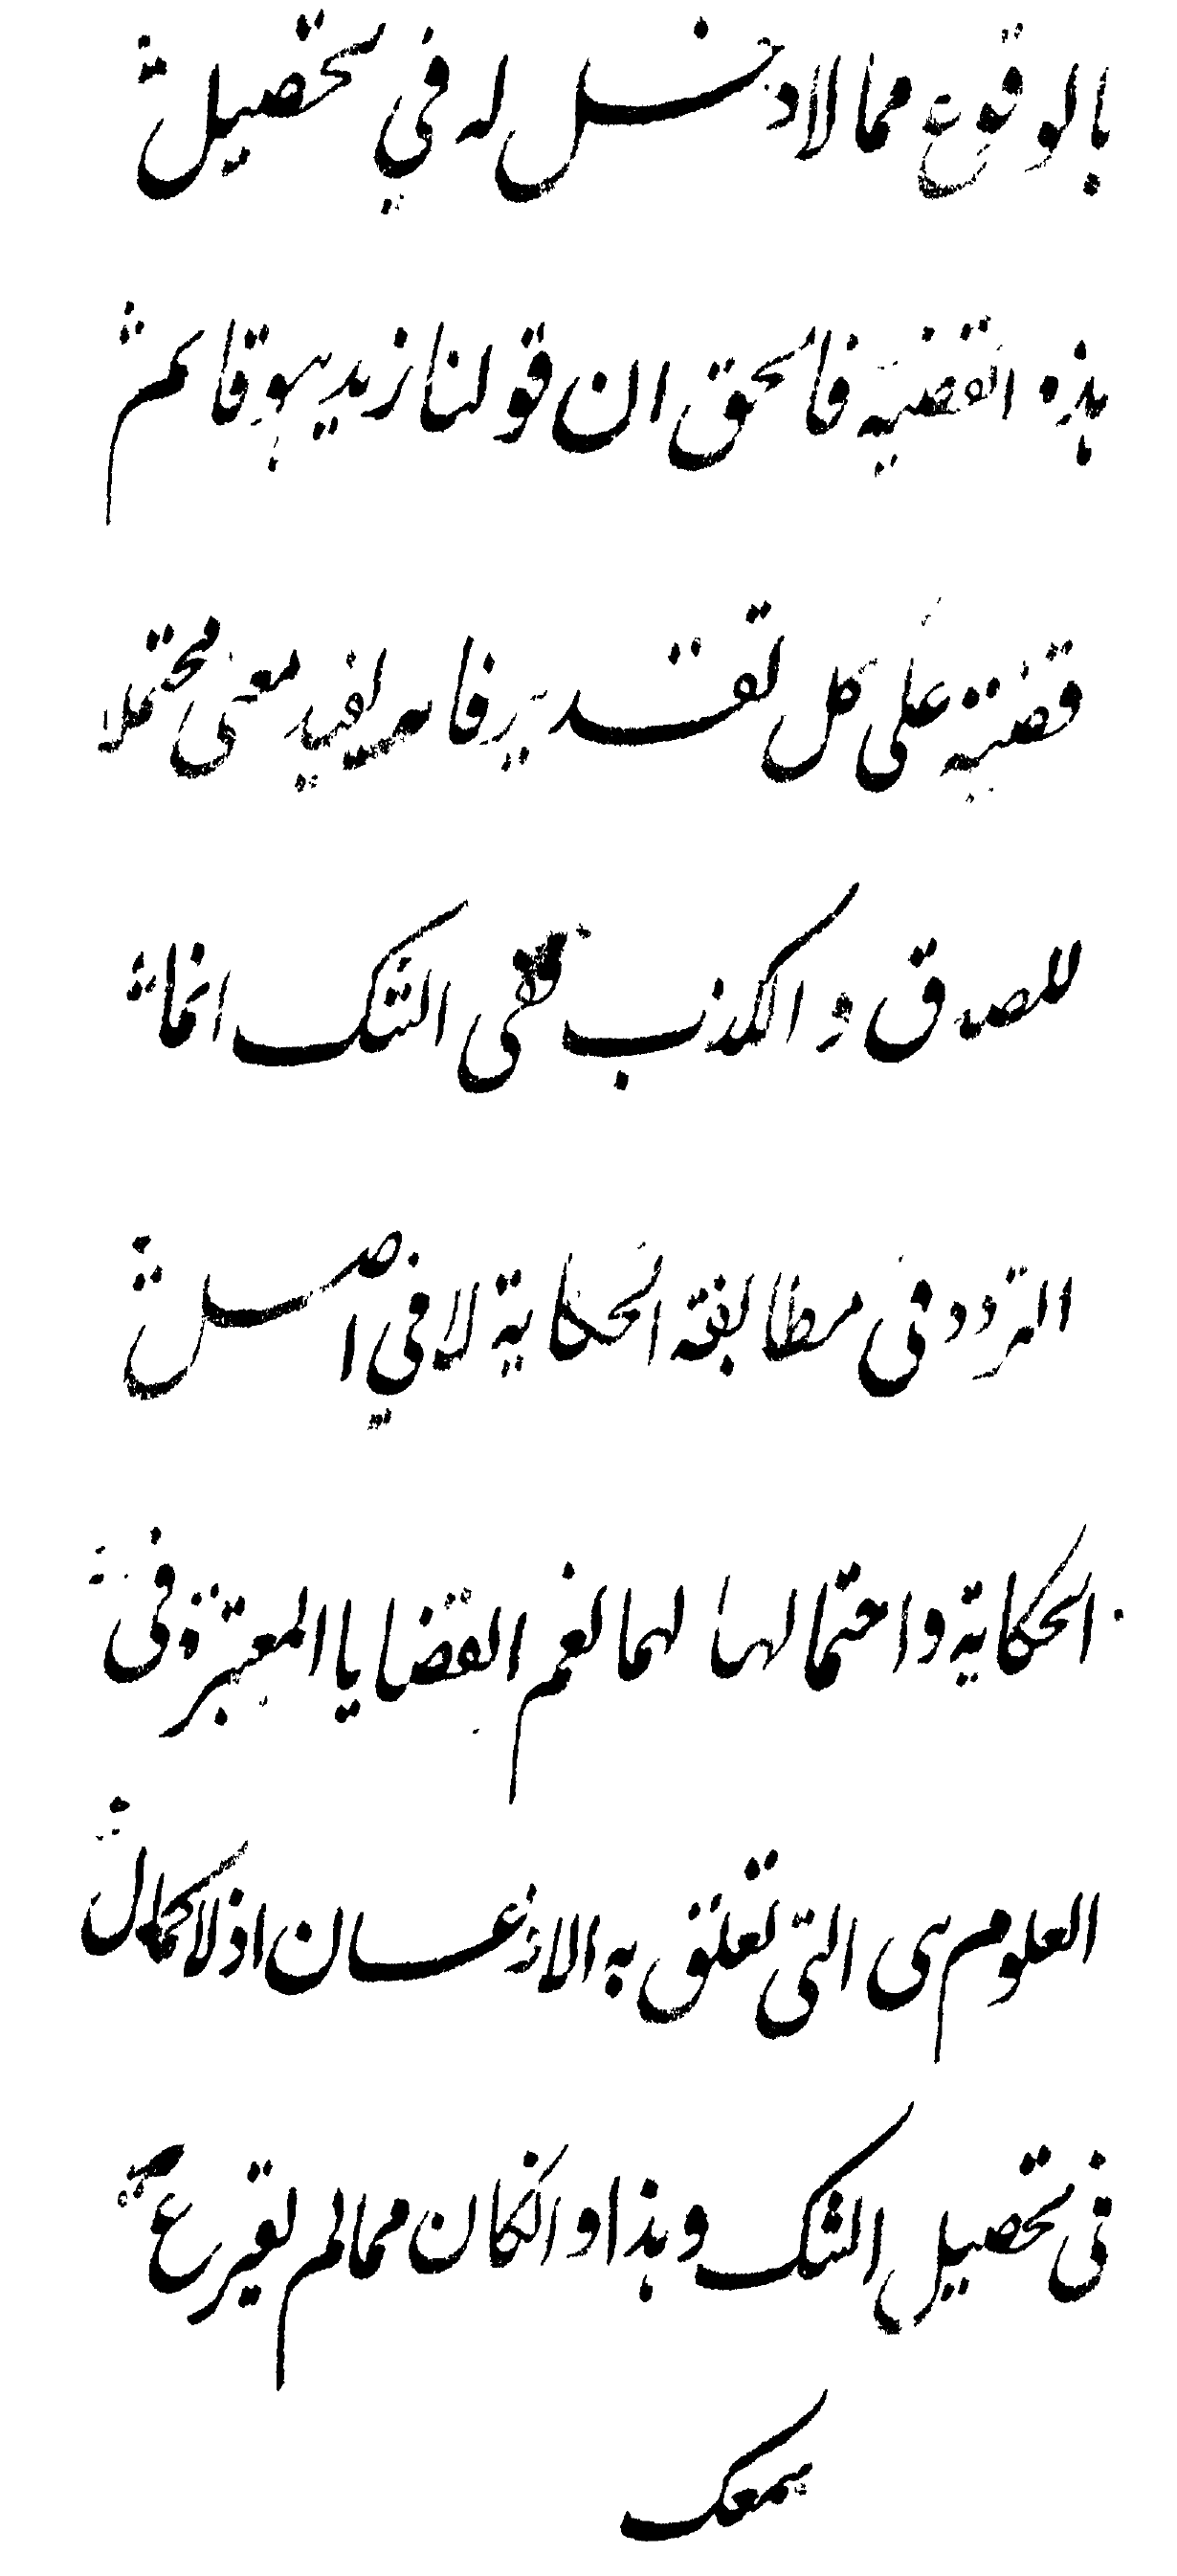 بالوقوع مما لا دخل له في تحصيل
هذه القضية فالحق ان قولنا زيد هو قائم
قضية على كل تقدير فانه يفيد معنى محتملا
للصدق والكذب ففى الشك انما
التردد فى مطابقة الحكاية لا في اصل
الحكاية واحتمالها لهما نعم القضايا المعتبرة فى
العلوم هى التى تعلق به الاذعان اذ لا كمال
فى تحصيل الشك وهذا وانكان مما لم يقرع
سمعك